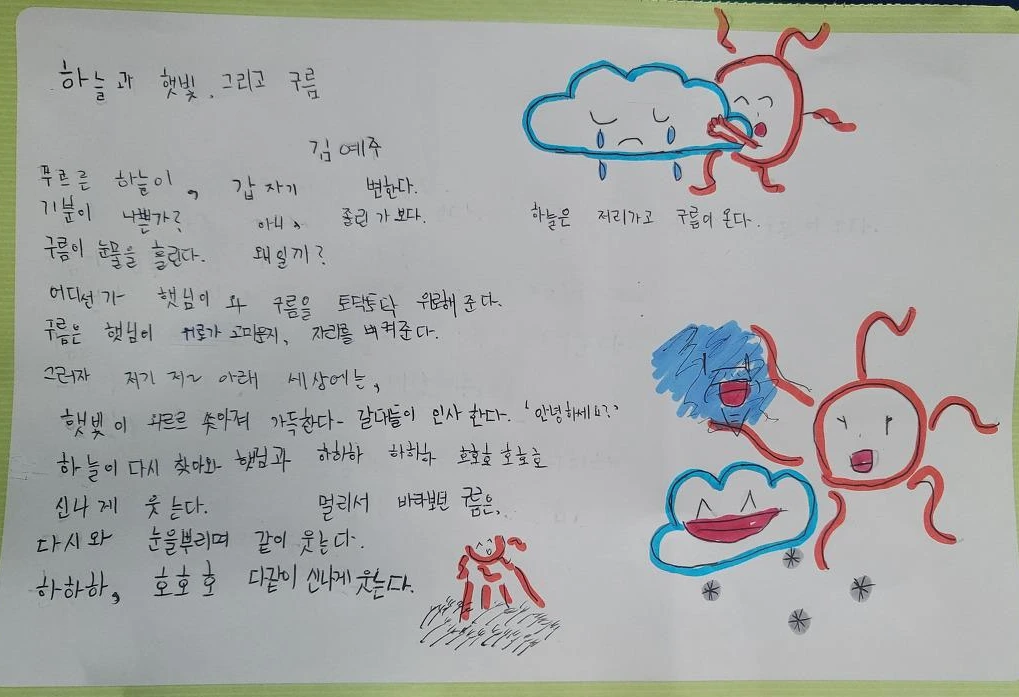 하늘과 햇빛, 그리고 구름
김예주
푸르른 하늘이, 갑자기 변한다.
기분이 나쁜가? 아니, 졸린가 보다. 하늘은 저리가고 구름이 온다.
구름이 눈물을 흘린다. 왜일까?
어디선가 햇님이 와 구름을 토닥토닥 위로해 준다.
구름은 햇님이 위로가 고마운지, 자리를 비켜준다.
그러자 저기 저~ 아래 세상에는,
햇빛이 와르르 쏟아져 가득한다- 갈대들이 인사한다. '안녕하세요?'
하늘이 다시 찾아와 햇님과 하하하 하하하 호호호 호호호
신나게 웃는다. 멀리서 바라보던 구름은,
다시 와 눈을뿌리며 같이 웃는다.
하하하, 호호호 다같이 신나게 웃는다.